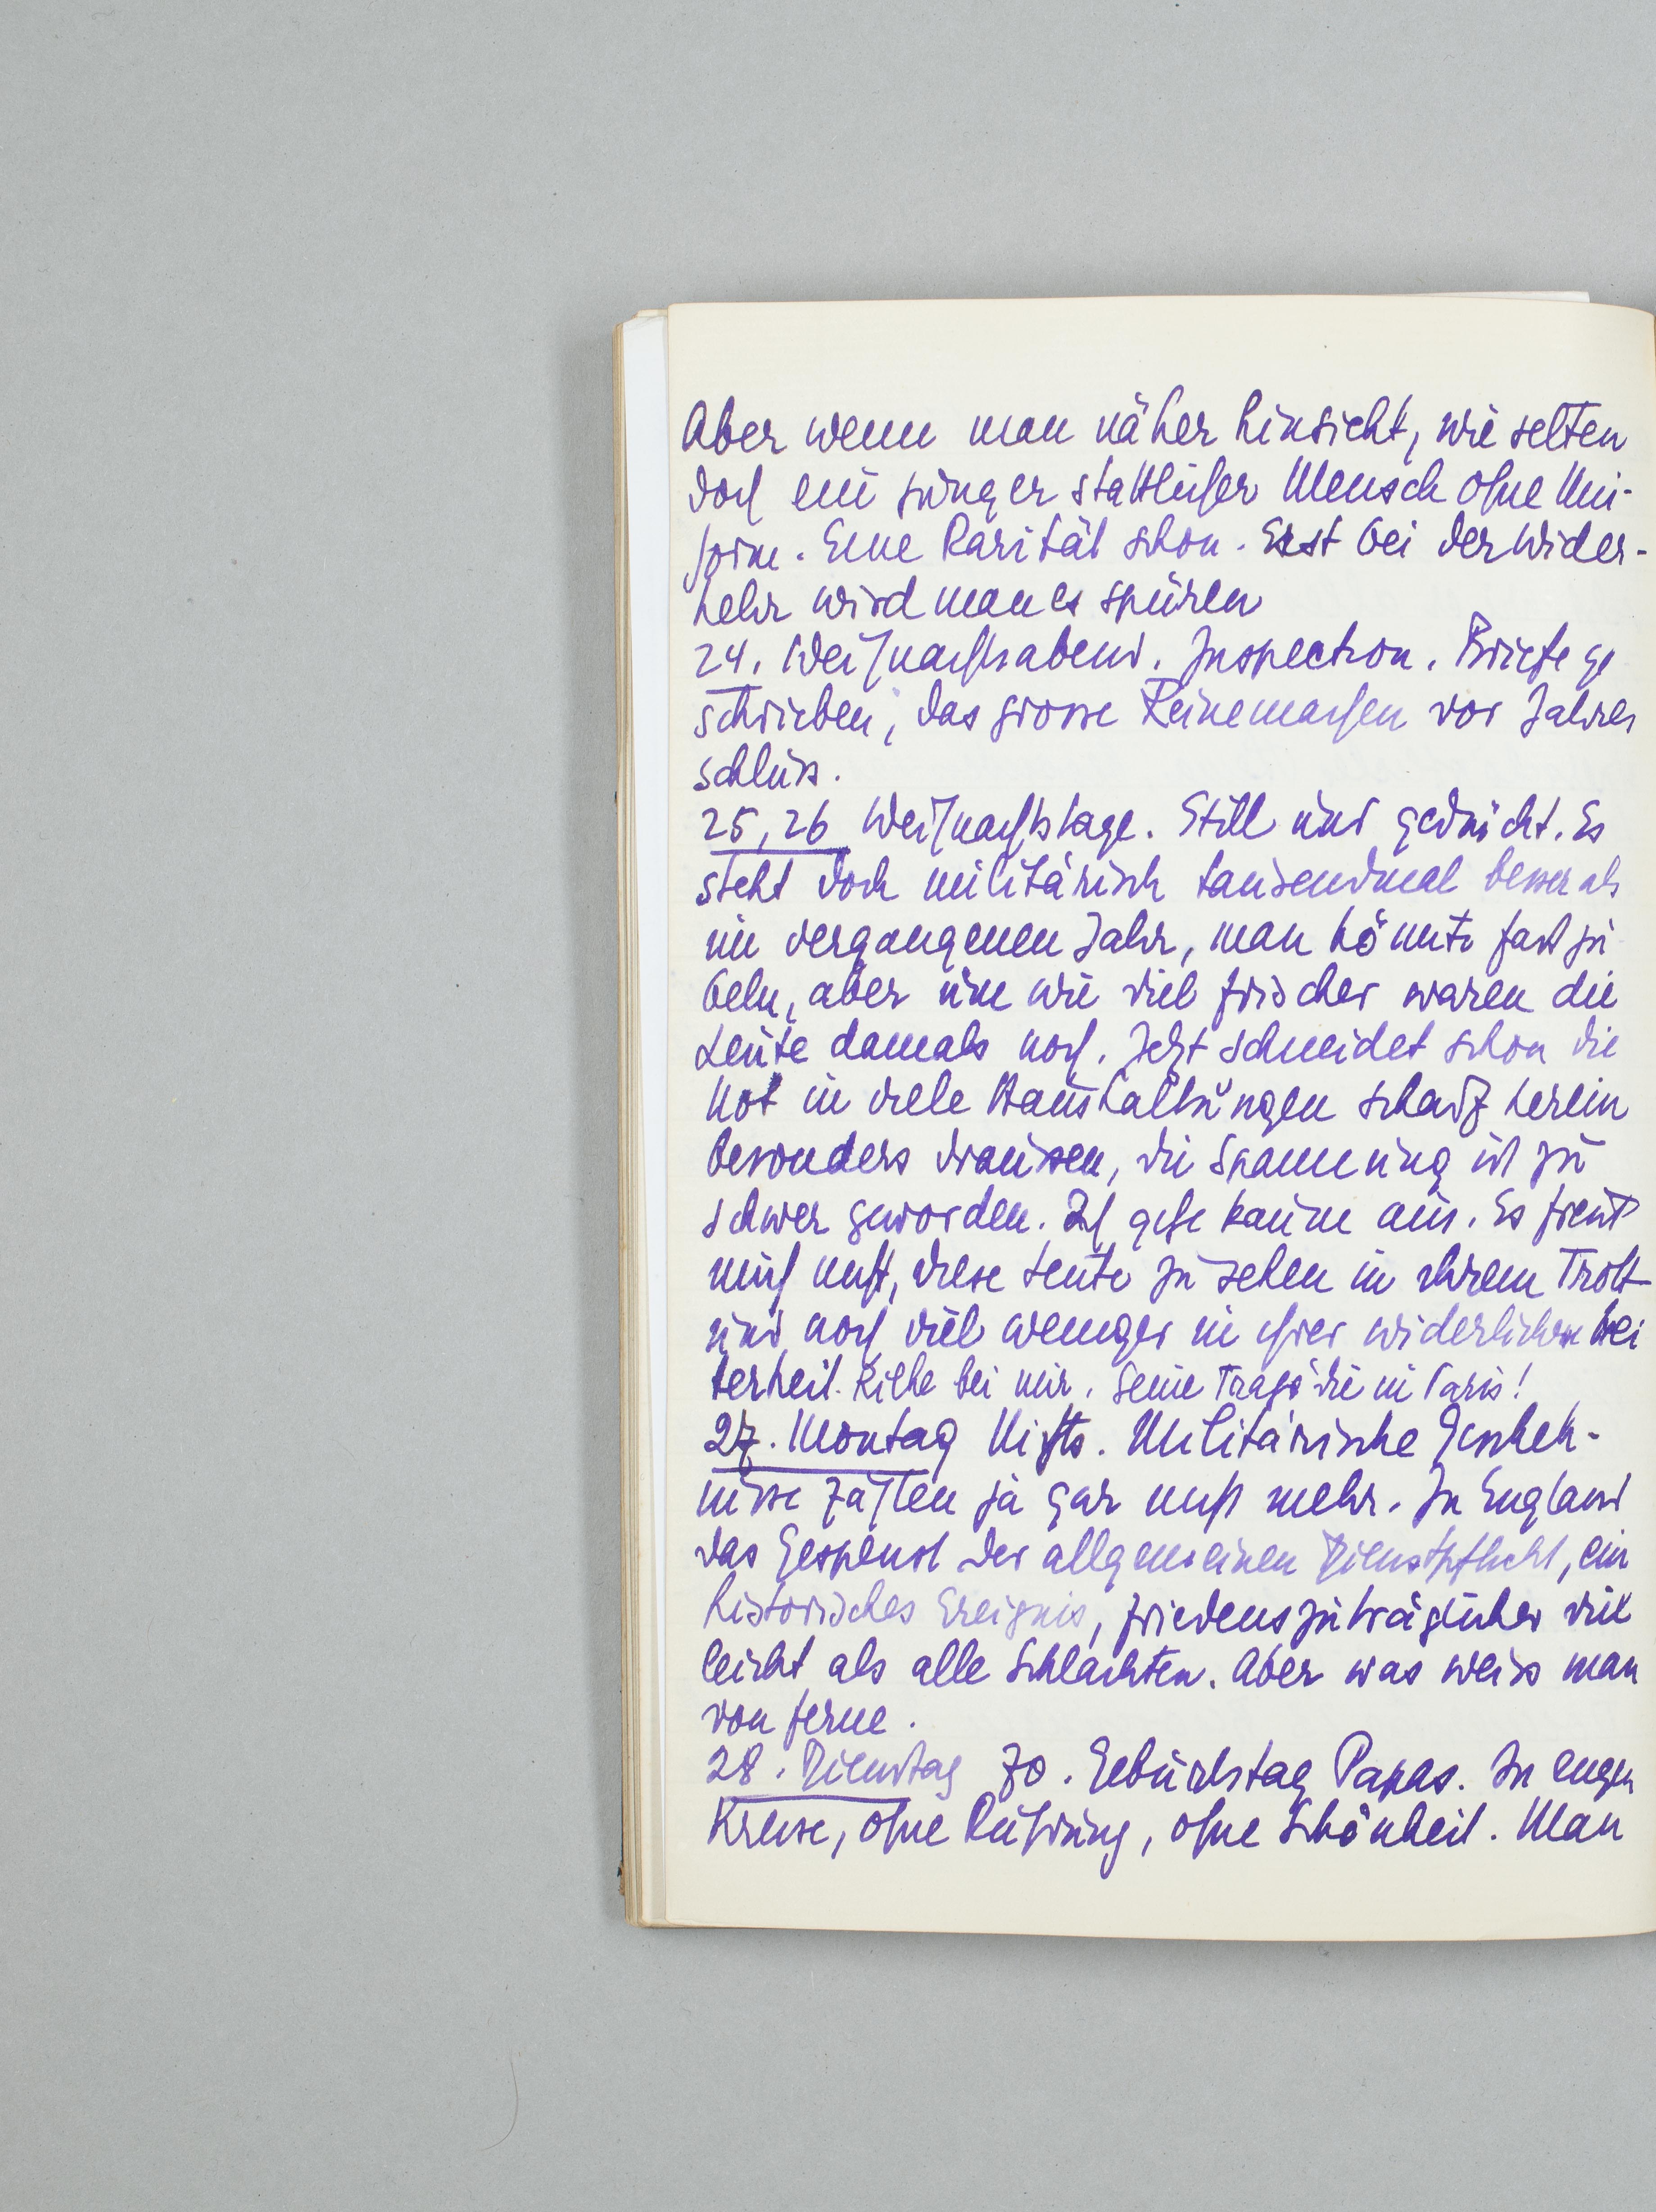 Aber wenn man näher hinsieht, wie selten
doch ein junger stattlicher Mensch ohne Uni-
form. Eine Rarität schon. Erst bei der Wider-
kehr wird man es spüren
24. Weihnachtsabend. Inspection. Briefe ge
schrieben, das grosse Reinemachen vor Jahres
schluss.
25, 26 Weihnachtstage. Still und gedrückt. Es
steht doch militärisch tausendmal besser als
im vergangenen Jahr, man könnte fast ju
beln, aber um wie viel frischer waren die
Leute damals noch. Jetzt schneidet schon die
Not in viele Haushaltungen scharf herein
besonders draussen, die Spannung ist zu
schwer geworden. Ich gehe kaum aus. Es freut
mich nicht, diese Leute zu sehen in ihrem Trott
und noch viel weniger in ihrer widerlichen Hei
terheit. Rilke bei mir. Seine Tragödie in Paris!
27. Montag Nichts. Militärische Gescheh-
nisse zählen ja gar nicht mehr. In England
das Gespenst der allgemeinen Dienstpflicht, ein
historisches Ereignis, friedenszuträglicher viel
leicht als alle Schlachten. Aber was weiss man
von ferne.
28. Dienstag 70. Geburtstag Papas. In engem
Kreise, ohne Rührung, ohne Schönheit. Man